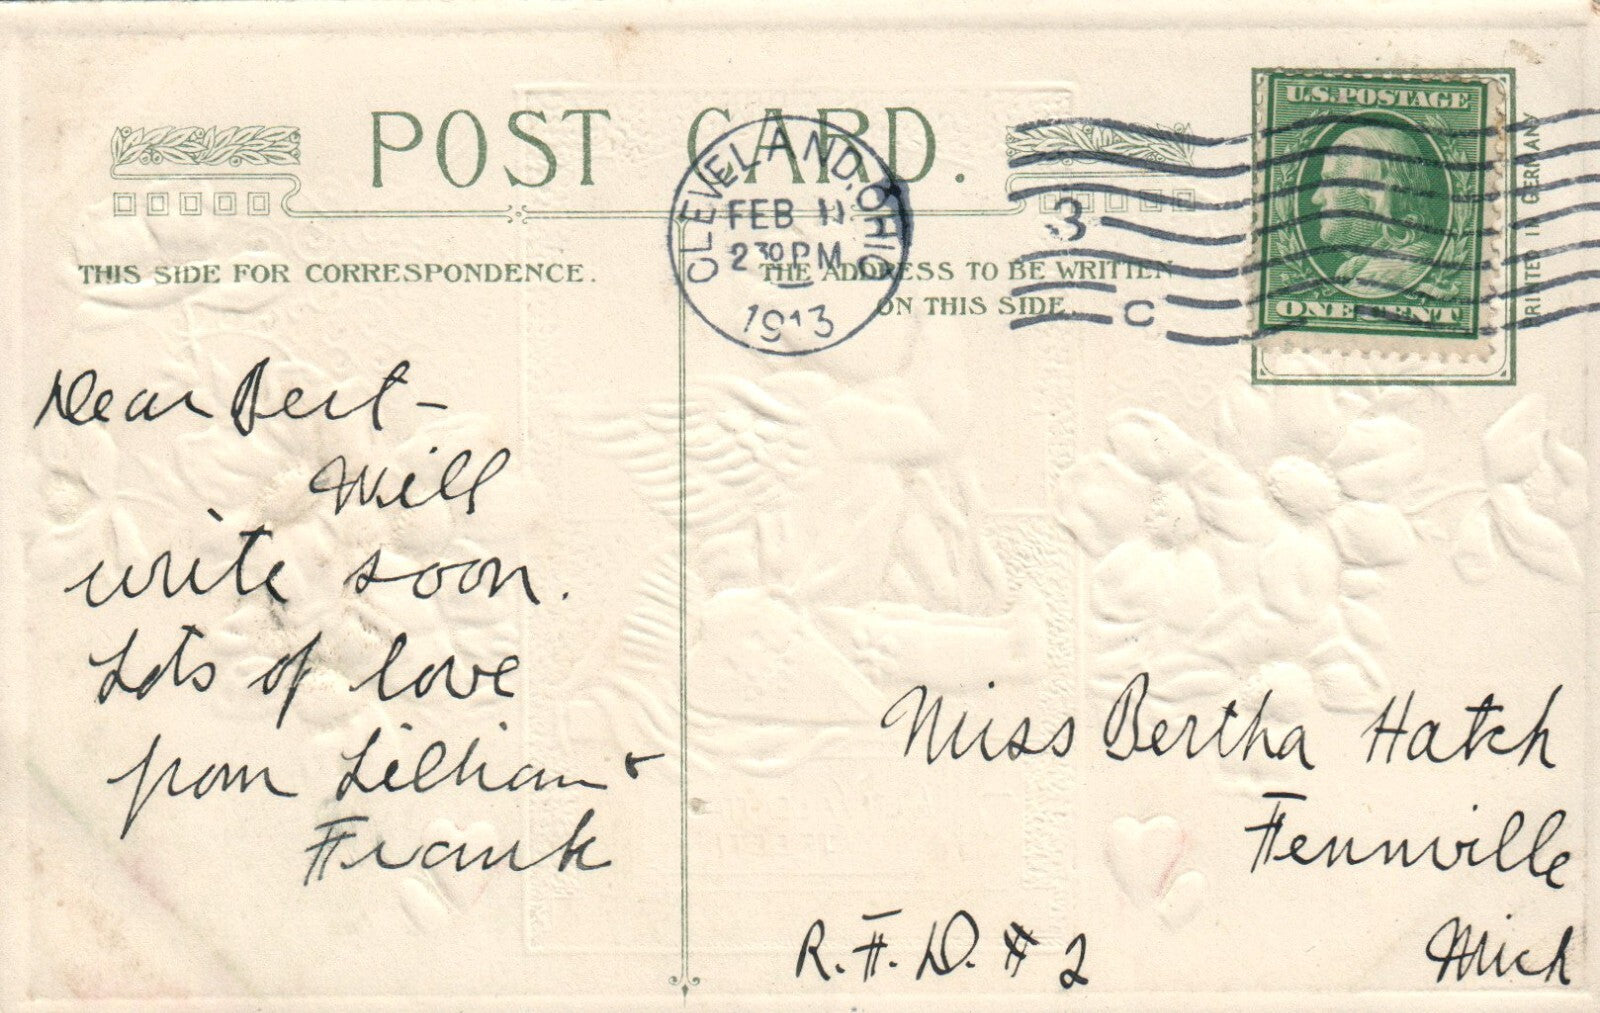 POST CARD.
U.S. POSTAGE
ONE CENT
PRINTED IN GERMANY
CLEVELAND, OHIO
FEB 11
2 30 PM
1913
3
C
THIS SIDE FOR CORRESPONDENCE.
THE ADDRESS TO BE WRITTEN
ON THIS SIDE.
Dear Bert -
Will
write soon.
Lots of love
from Lillian &
Frank
Miss Bertha Hatch
Fennville
Mich
R.F.D. # 2